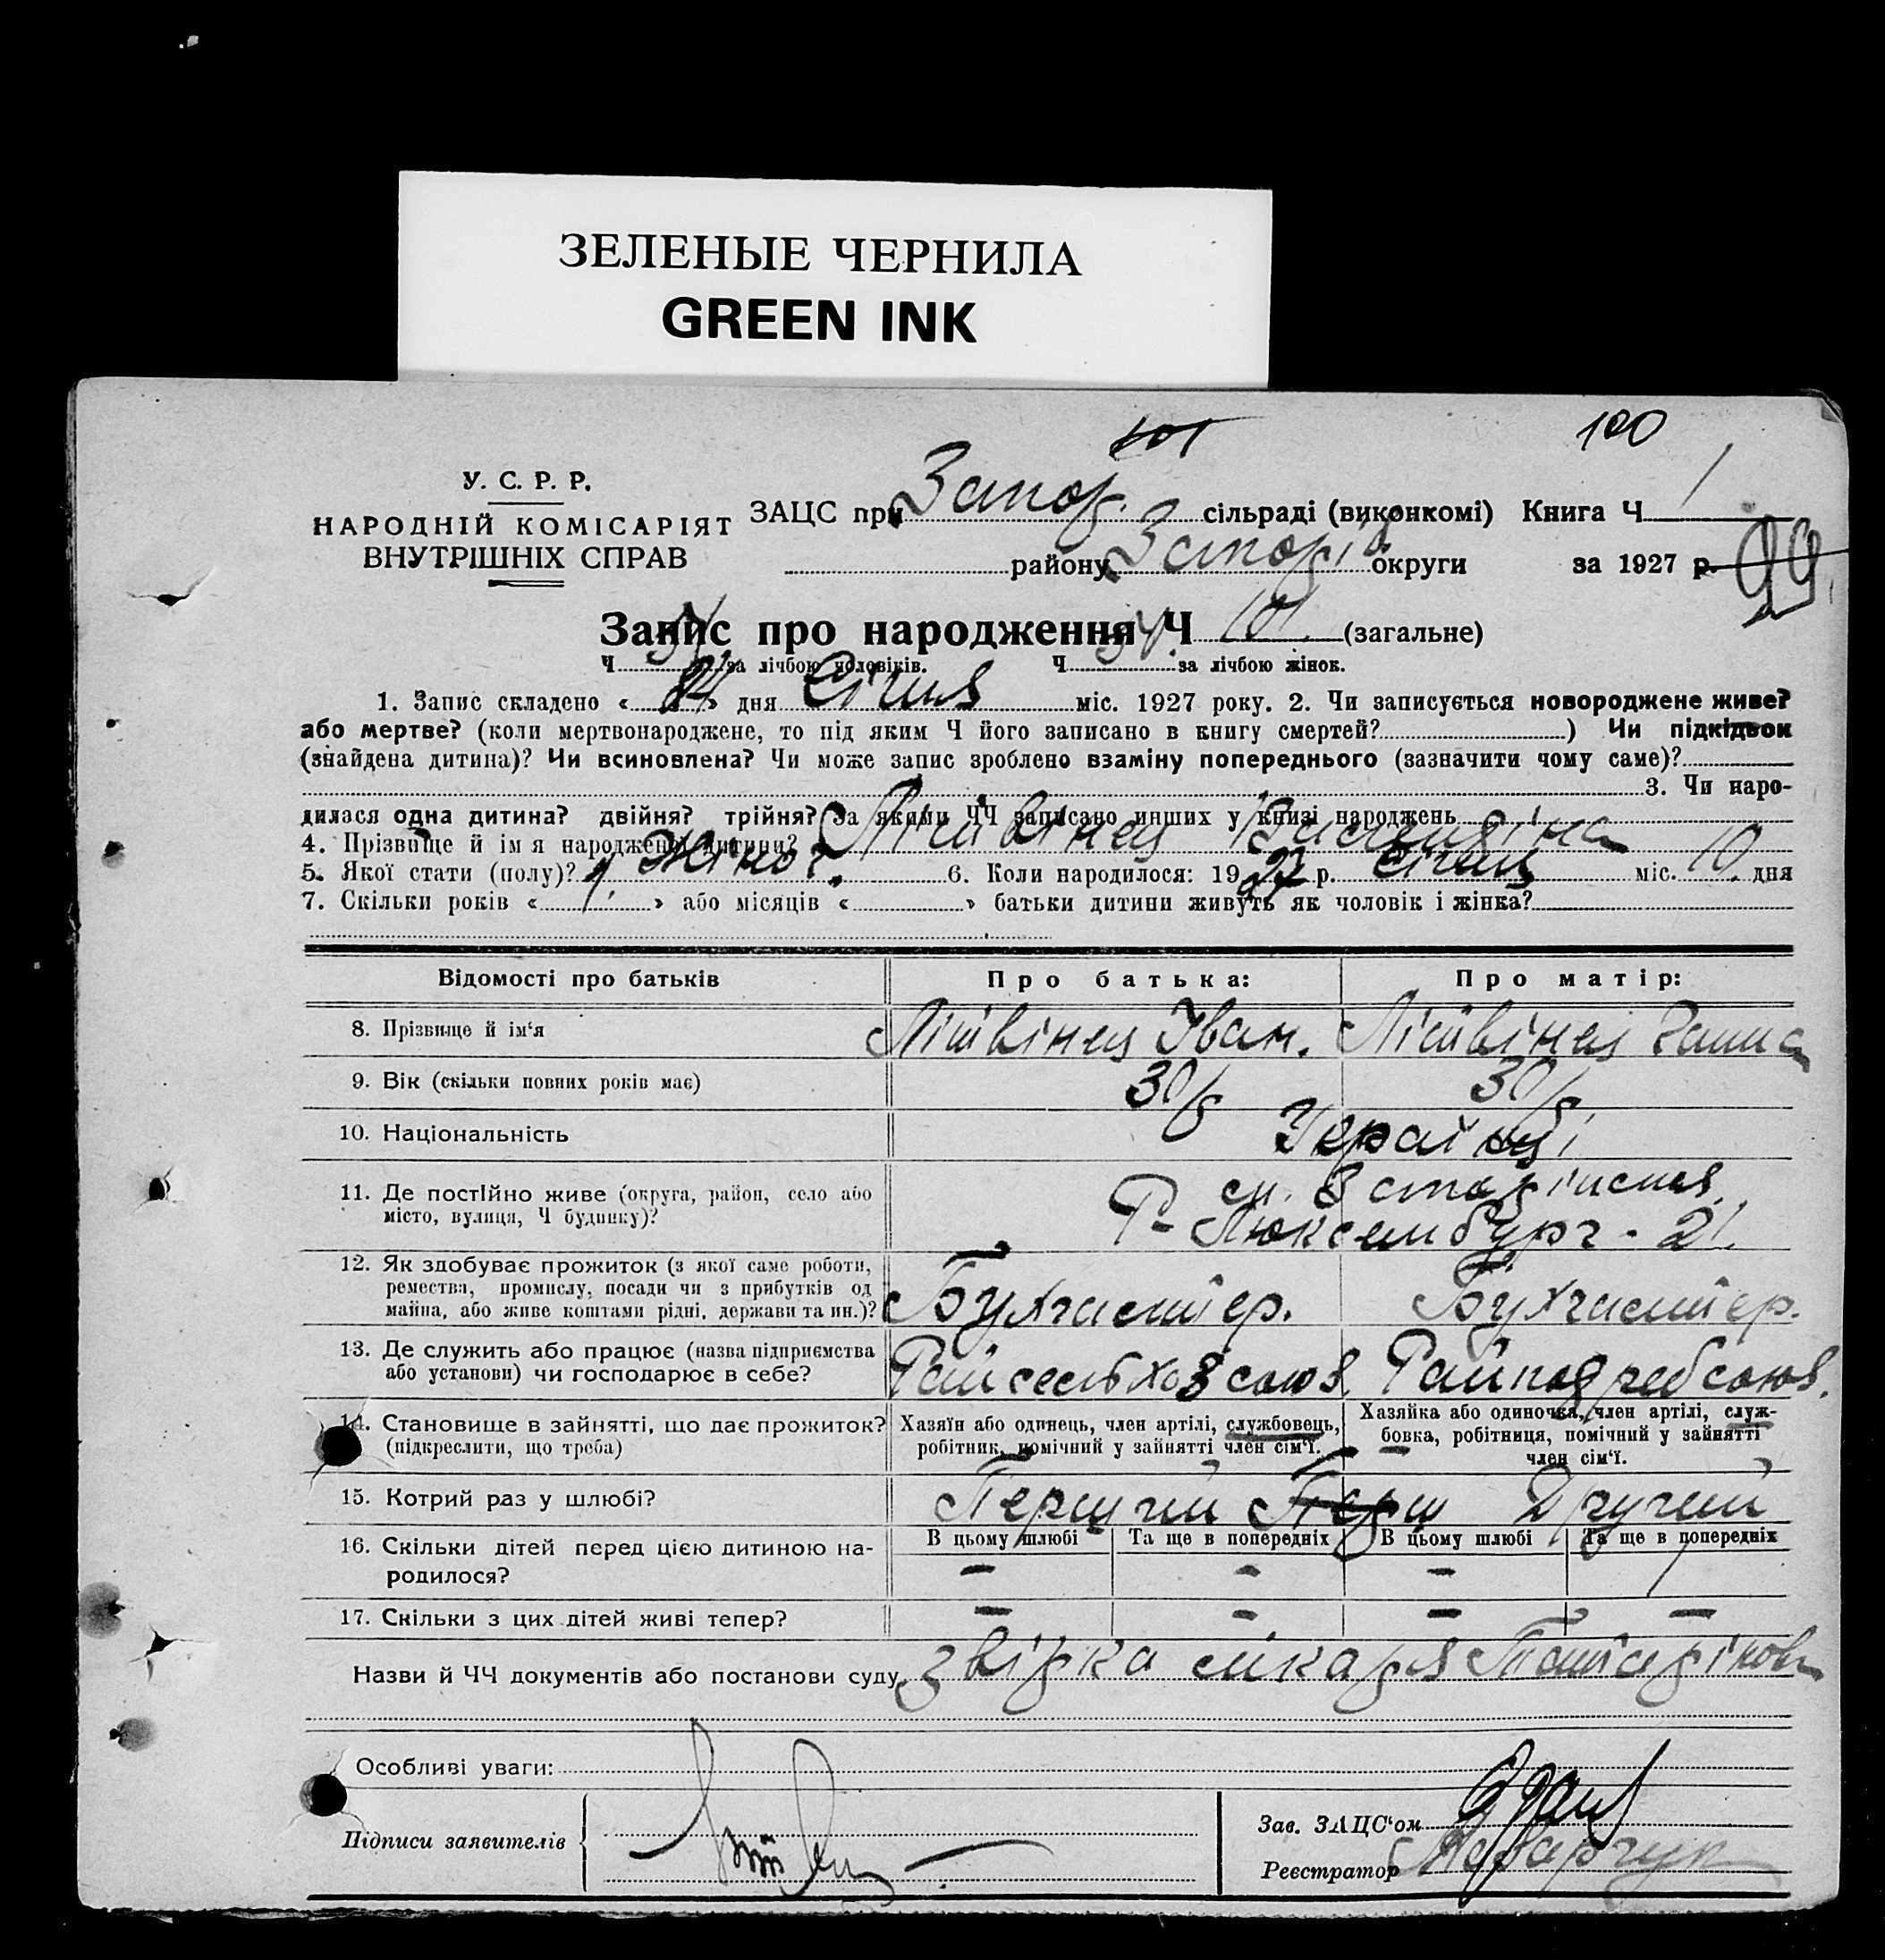 ЗЕЛЕНЫЕ ЧЕРНИЛА
GREEN INK
101
100
У. С. Р. Р.
НАРОДНІЙ КОМІСАРІЯТ
ВНУТРІШНІХ СПРАВ
ЗАЦС при Запор. сільраді (виконкомі) Книга Ч 1
району Запоріз округи за 1927 р. 99
Запис про народження Ч 101. (загальне)
Ч за лічбою чоловіків. Ч 54 за лічбою жінок.
1. Запис складено « » дня Січня міс. 1927 року. 2. Чи записується новороджене живе?
або мертве? (коли мертвонароджене, то під яким Ч його записано в книгу смертей? ) Чи підкідьок
(знайдена дитина)? Чи всиновлена? Чи може запис зроблено взаміну попереднього (зазначити чому саме)?
3. Чи наро-
дилася одна дитина? двійня? трійня? За якими ЧЧ записано инших у книзі народжень
4. Прізвище й ім я народженої дитини? Літвінец Валентіна
5. Якої стати (полу)? Жіноч. 6. Коли народилося: 1927 р. Січня міс. 10. дня
7. Скільки років « 1. » або місяців « » батьки дитини живуть як чоловік і жінка?
Відомості про батьків Про батька: Про матір:
8. Прізвище й ім‘я Літвінец Іван. Літвінец
9. Вік (скільки повних років має) 30/р 30/р.
10. Національність Українці
11. Де постійно живе (округа, район, село або
місто, вулиця, Ч будинку)? Р-Люксембург - 21.
12. Як здобуває прожиток (з якої саме роботи,
ремества, промислу, посади чи з прибутків од
майна, або живе коштами рідні, держави та ин.)? Бухгалтер. Бухгалтер.
13. Де служить або працює (назва підприємства
або установи) чи господарює в себе? Райсельхозсоюз. Райподребсоюз.
14. Становище в зайнятті, що дає прожиток?
(підкреслити, що треба)
Хазяїн або одинець, член артілі, службовець,
робітник, помічний у зайнятті член сім‘ї.
Хазяйка або одиночка, член артілі, служ-
бовка, робітниця, помічний у зайнятті
член сім‘ї.
15. Котрий раз у шлюбі? Перший Перш Другий
16. Скільки дітей перед цією дитиною на-
родилося?
В цьому шлюбі Та ще в попередніх В цьому шлюбі Та ще в попередніх
- - - 1
17. Скільки з цих дітей живі тепер? - - - -
Назви й ЧЧ документів або постанови суду лікаря
Особливі уваги:
Підписи заявителів
Зав. ЗАЦС‘ом
Реєстратор